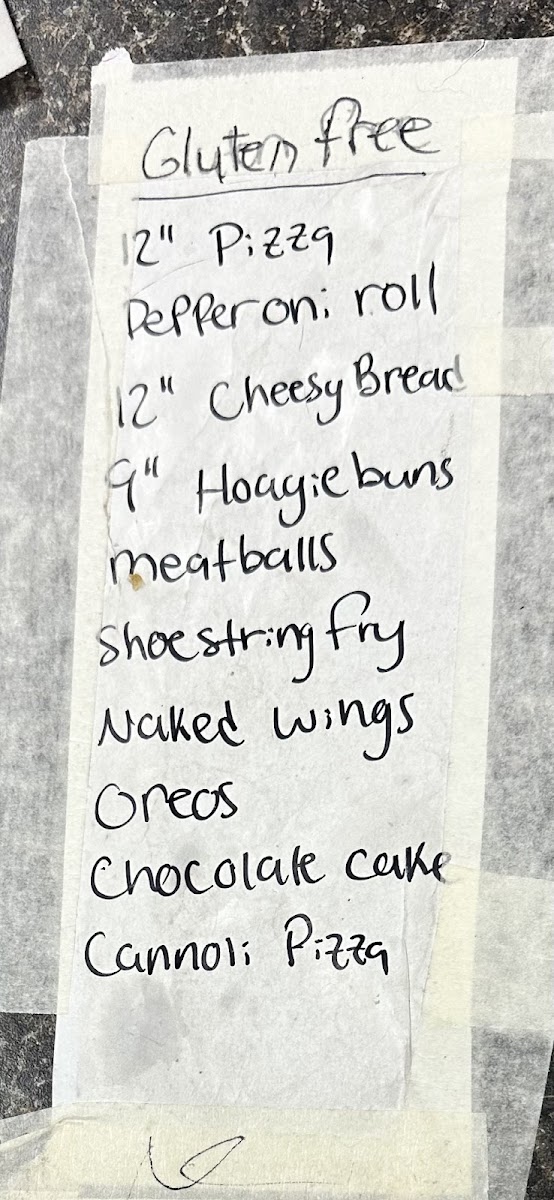 Gluten free
12" Pizza
Pepperoni roll
12" Cheesy Bread
9" Hoagie buns
meatballs
shoestring fry
Naked wings
Oreos
Chocolate cake
Cannoli Pizza